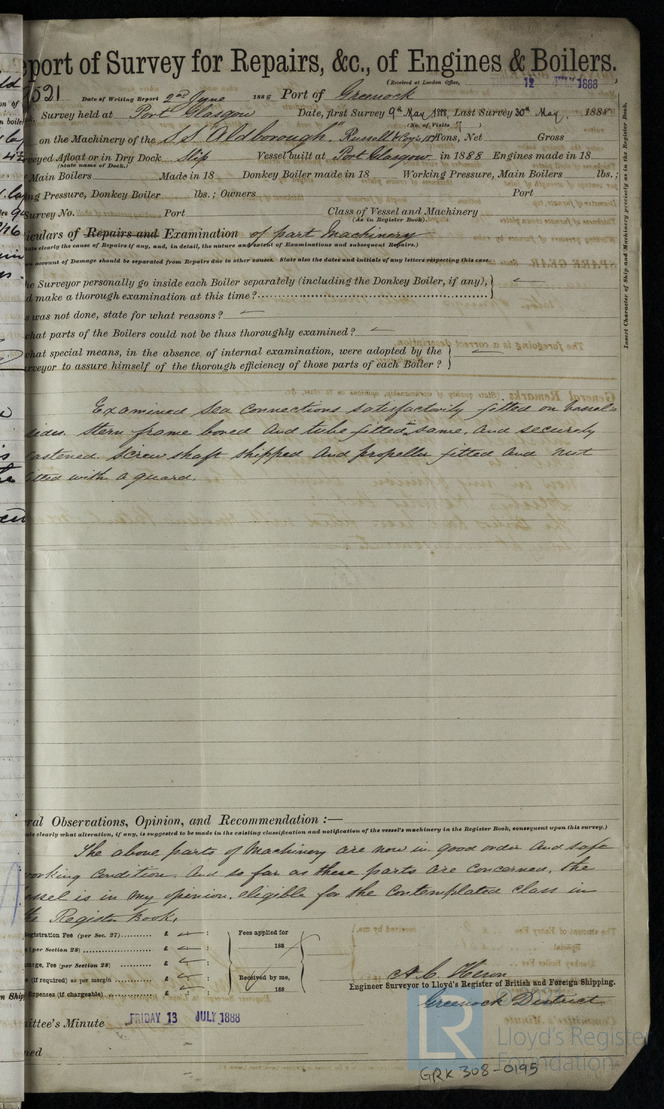 port of Survey for Repairs, &c., of Engines & Boilers.
(Received at London Office, 12 1888)
521 Date of Writing Report 2nd June 188 Port of Greenock
Survey held at Port Glasgow Date, first Survey 9th May 1888, Last Survey 30th May, 1888
(No. of Visits )
on the Machinery of the S.S. Aldborough. Russell Tons, Net Gross
veyed Afloat or in Dry Dock Slip Vessel built at Port Glasgow in 1888 Engines made in 18
(State name of Dock.) (As in Register Book).
Main Boilers Made in 18 Donkey Boiler made in 18 Working Pressure, Main Boilers lbs.;
ing Pressure, Donkey Boiler lbs.; Owners Port
Survey No. Port Class of Vessel and Machinery
iculars of Repairs and Examination of part Machinery
ate clearly the cause of Repairs if any, and, in detail, the nature and extent of Examinations and subsequent Repairs.)
account of Damage should be separated from Repairs due to other causes. State also the dates and initials of any letters respecting this case.
he Surveyor personally go inside each Boiler separately (including the Donkey Boiler, if any),
d make a thorough examination at this time?
was not done, state for what reasons? —
hat parts of the Boilers could not be thus thoroughly examined? —
hat special means, in the absence of internal examination, were adopted by the
rveyor to assure himself of the thorough efficiency of those parts of each Boiler? —
Examined Sea Connections satisfactorily fitted on Vessel's
sides. Stern frame bored and tube fitted to same, and securely
fastened. Screw shaft shipped and propeller fitted and nut
fitted with a guard.
ral Observations, Opinion, and Recommendation :—
te clearly what alteration, if any, is suggested to be made in the existing classification and notification of the vessel's machinery in the Register Book, consequent upon this survey.)
The above parts of Machinery are now in good order and safe
working condition. And so far as these parts are concerned, the
essel is in my opinion, eligible for the contemplated class in
the Register book.
egistration Fee (per Sec. 27) £ — : Fees applied for
(per Section 28) £ — : 188
mage, Fee (per Section 28) £ — :
(if required) as per margin £ — : Received by me,
Expenses (if chargeable) £ — : 188
A C Heron
Engineer Surveyor to Lloyd's Register of British and Foreign Shipping.
Greenock District
mittee's Minute FRIDAY 13 JULY 1888
ned
Insert Character of Ship and Machinery precisely as in the Register Book.
LR Lloyd's Register
Foundation
GRK 308-0195